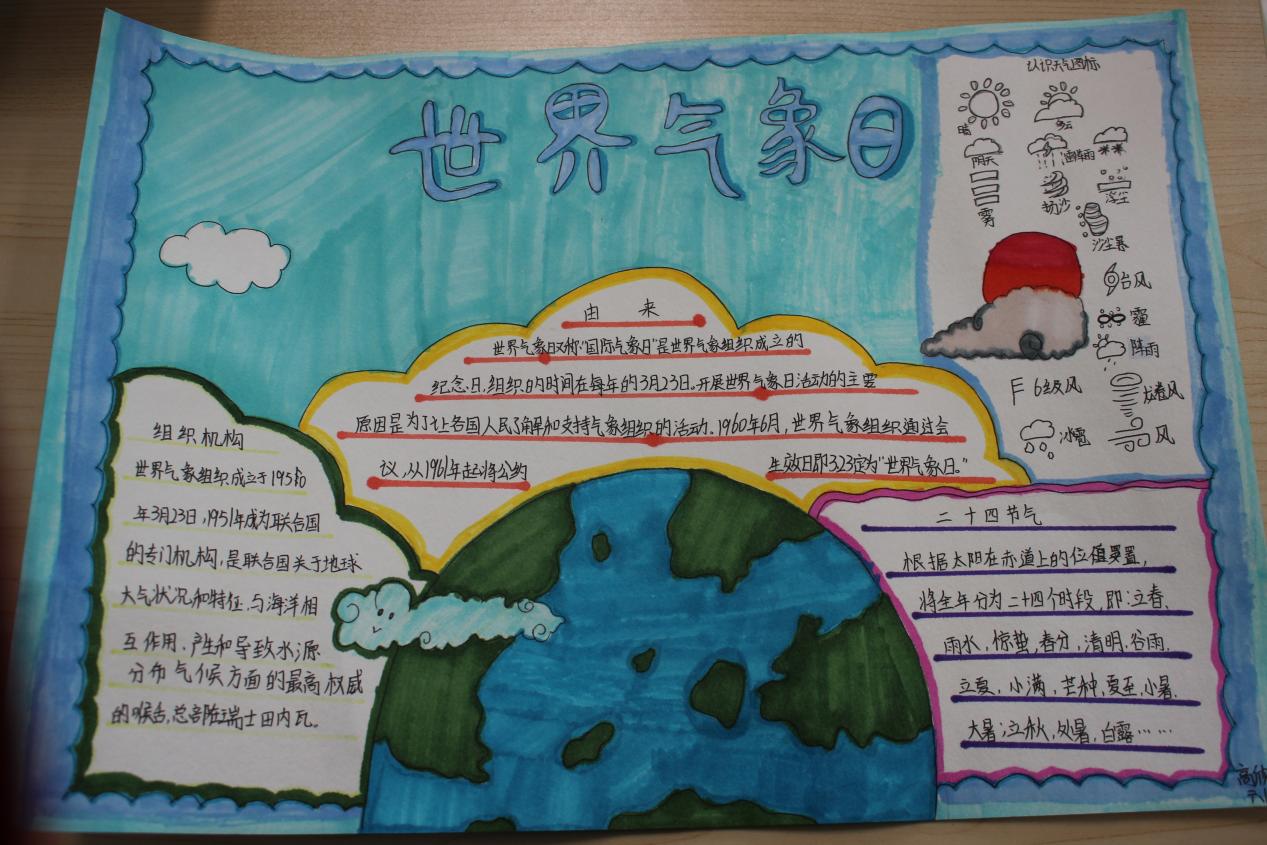 世界气象日
认识天气图标
晴
多云
阴天
雷阵雨
雾
扬沙
浮尘
沙尘暴
台风
霾
阵雨
6级风
龙卷风
冰雹
风
由 来
世界气象日又称“国际气象日”是世界气象组织成立的
纪念日.组织的时间在每年的3月23日.开展世界气象日活动的主要
原因是为了让各国人民了解和支持气象组织的活动.1960年6月,世界气象组织通过会
议,从1961年起将公约 生效日即3.23定为“世界气象日.”
组织机构
世界气象组织成立于1950
年3月23日,1951年成为联合国
的专门机构,是联合国关于地球
大气状况和特征.与海洋相
互作用、产生和导致水源
分布气候方面的最高权威
的喉舌,总部瑞士日内瓦。
二十四节气
根据太阳在赤道上的位置,
将全年分为二十四个时段,即:立春、
雨水,惊蛰,春分,清明.谷雨.
立夏,小满,芒种,夏至,小暑.
大暑,立秋,处暑,白露……